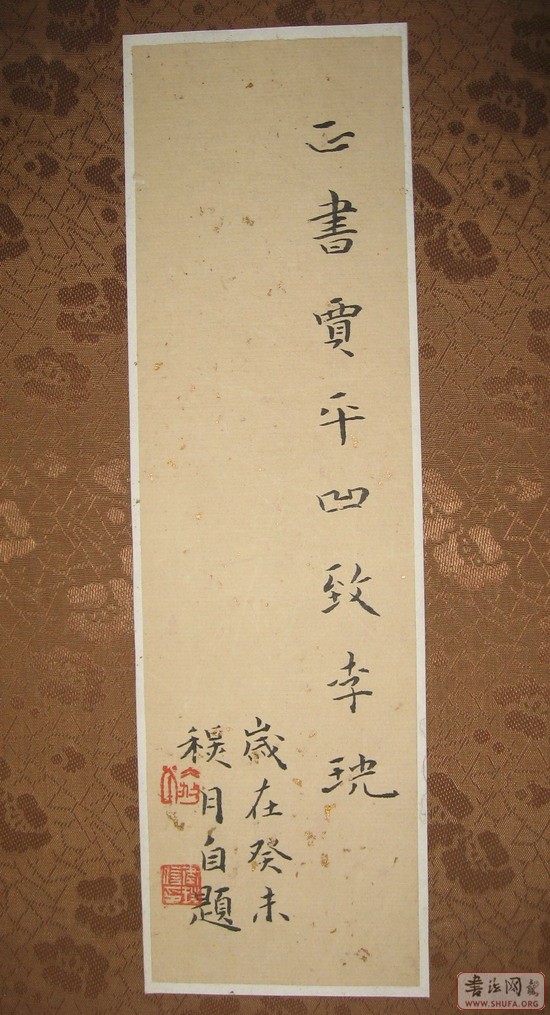 正書賈平凹致李珖
歲在癸未
月自題
書法网
WWW.SHUFA.ORG